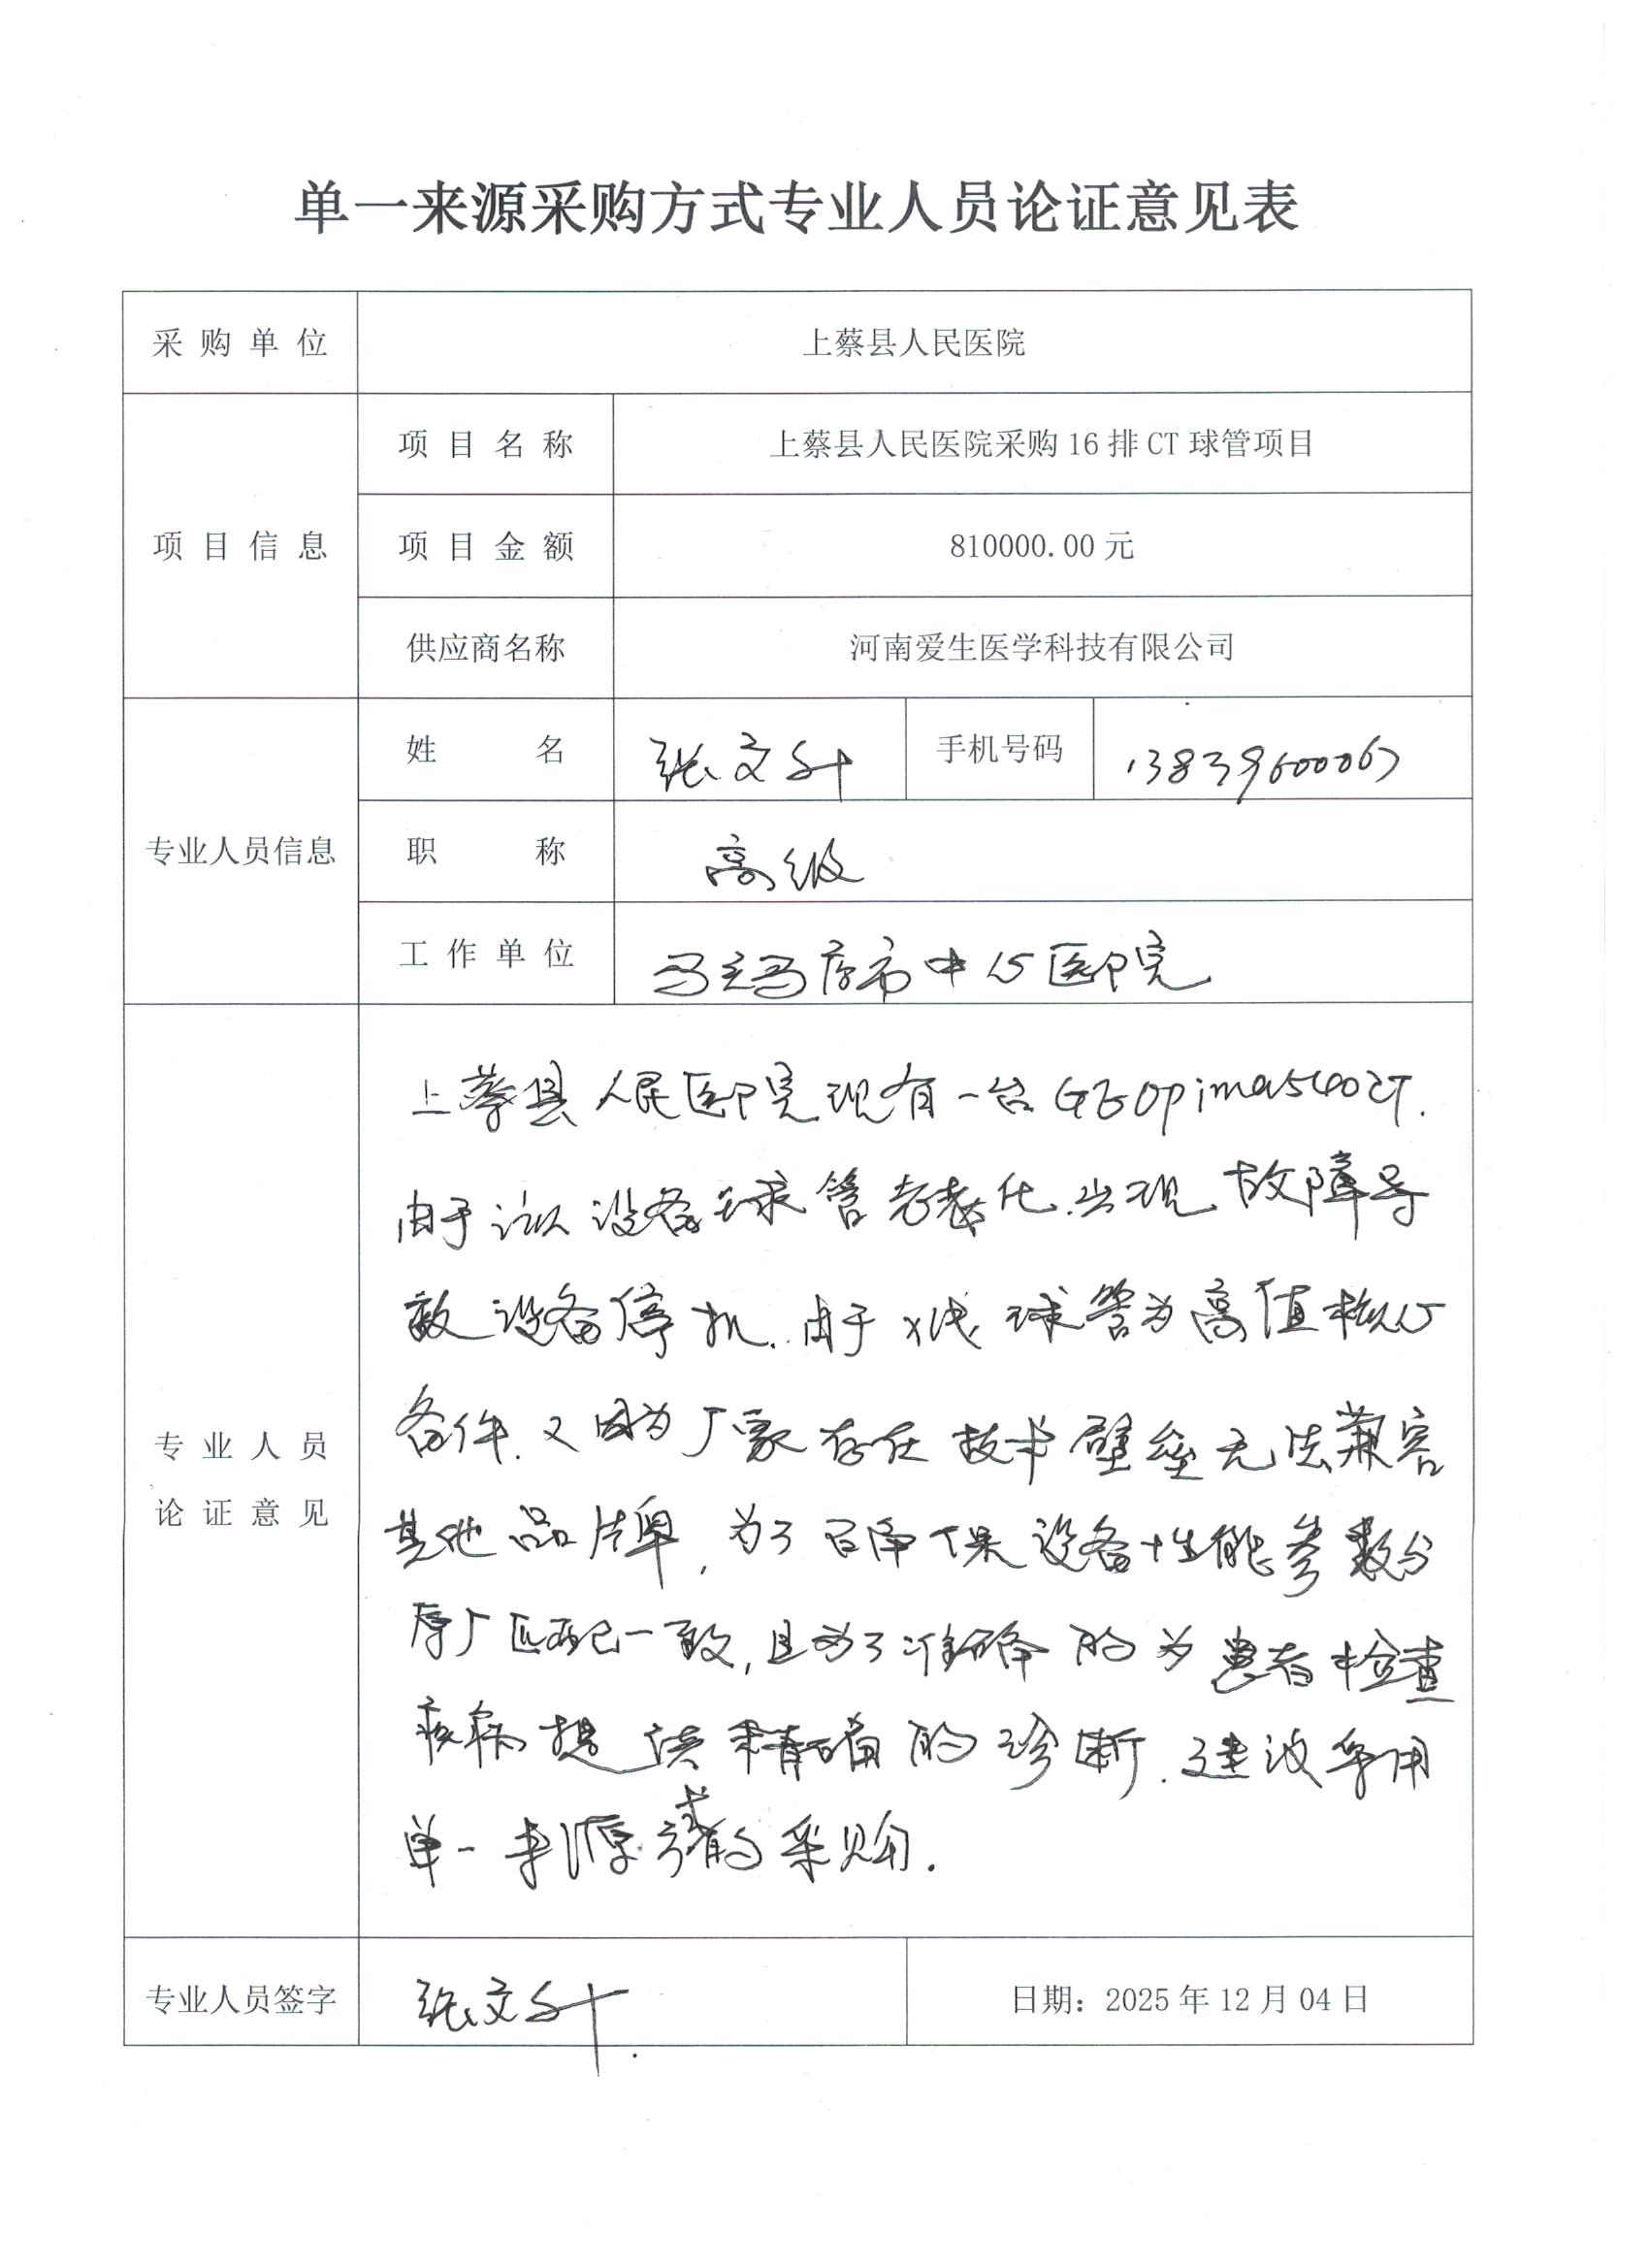 单一来源采购方式专业人员论证意见表
采购单位 上蔡县人民医院
项目信息 项目名称 上蔡县人民医院采购16排CT球管项目
项目金额 810000.00元
供应商名称 河南爱生医学科技有限公司
专业人员信息 姓名 张文 手机号码
职称 高级
工作单位 马店市中心医院
专业人员论证意见
上蔡县人民医院现有一台GEOpima540CT.
由于该设备球管老化.出现故障导
致设备停机.由于X线球管为高值核心
备件.又因为厂家存在技术壁垒无法兼容
其他品牌,为了确保设备性能参数与
原厂匹配一致,且为了准确的为患者检查
疾病提供精确的诊断.建议采用
单一来源方式的采购.
专业人员签字 张文 日期：2025年12月04日